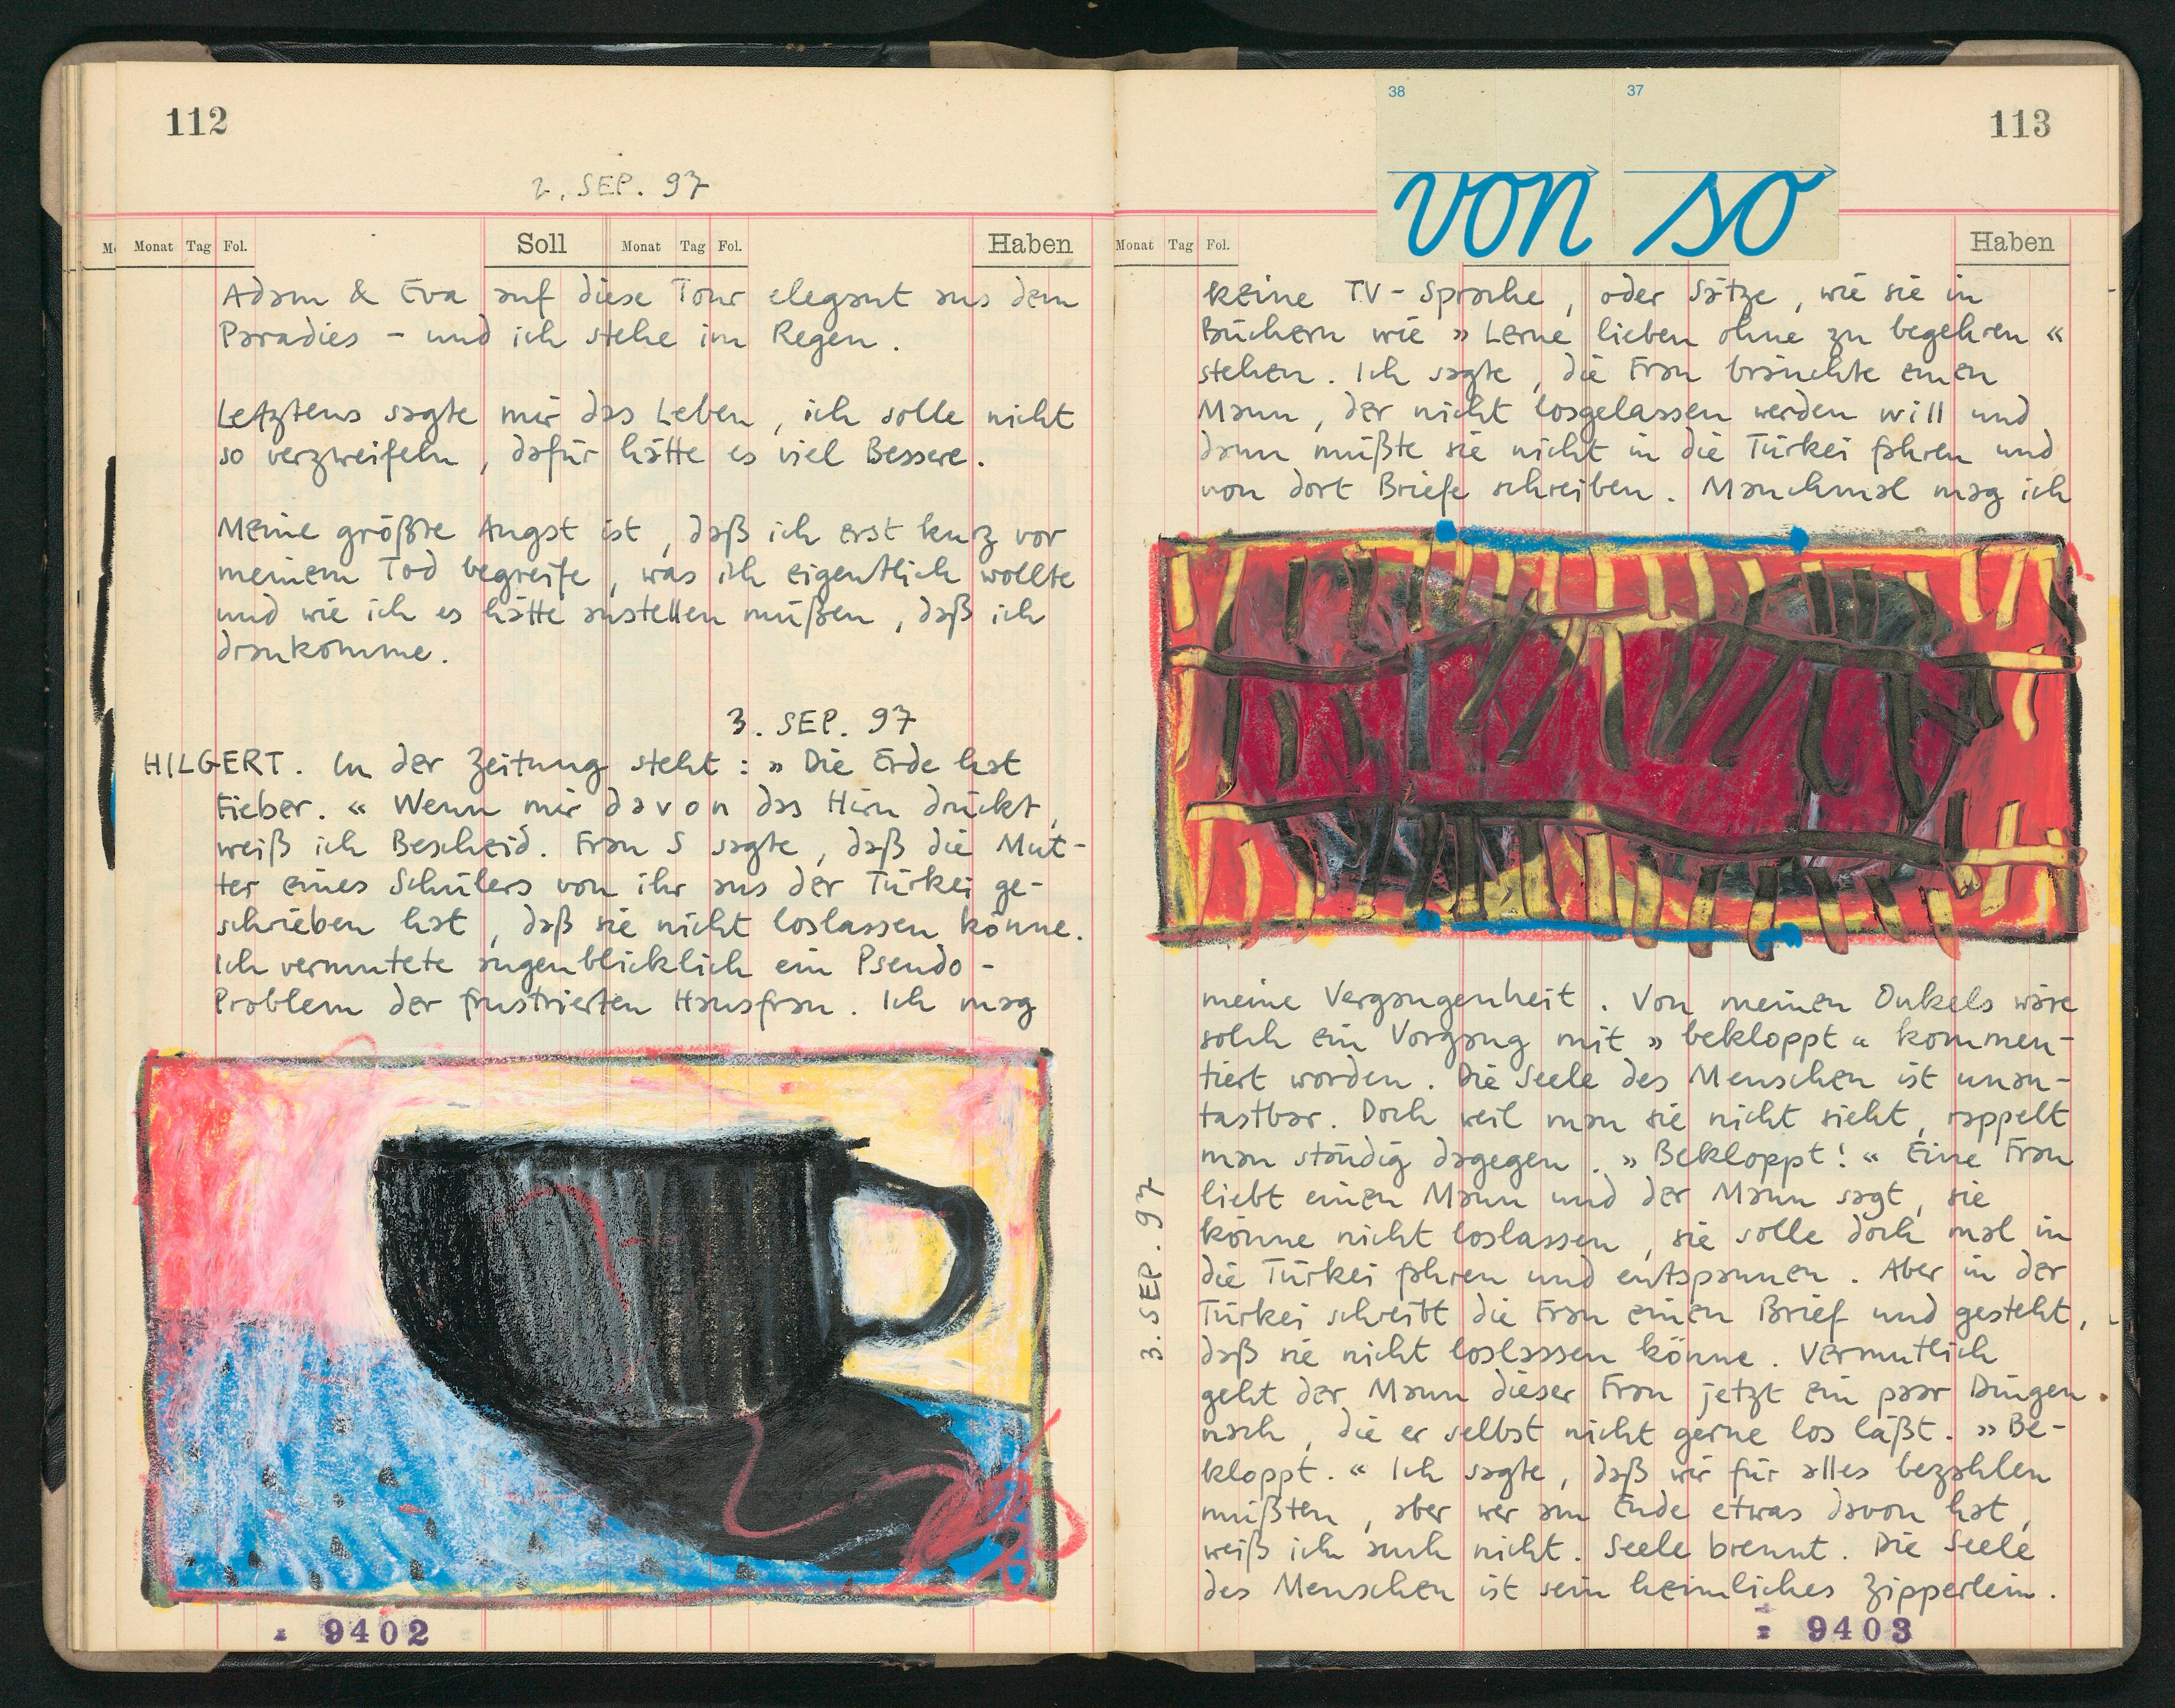 112
2. SEP. 97
Monat Tag Fol. Soll Monat Tag Fol. Haben
Adam & Eva auf diese Tour elegant aus dem
Paradies – und ich stehe im Regen.
Letztens sagte mir das Leben, ich solle nicht
so verzweifeln, dafür hätte es viel Bessere.
Meine größte Angst ist, daß ich erst kurz vor
meinem Tod begreife, was ich eigentlich wollte
und wie ich es hätte anstellen müßen, daß ich
drankomme.
3. SEP. 97
HILGERT. In der Zeitung steht: » Die Erde hat
Fieber. « Wenn mir davon das Hirn drückt,
weiß ich Bescheid. Frau S sagte, daß die Mut-
ter eines Schülers von ihr aus der Türkei ge-
schrieben hat, daß sie nicht loslassen könne.
Ich vermutete augenblicklich ein Pseudo-
Problem der frustrierten Hausfrau. Ich mag
9402
38 37
von so
113
Monat Tag Fol. Haben
keine TV-Sprache, oder Sätze, wie sie in
Büchern wie » Lerne lieben ohne zu begehren «
stehen. Ich sagte, die Frau bräuchte einen
Mann, der nicht losgelassen werden will und
dann müßte sie nicht in die Türkei fahren und
von dort Briefe schreiben. Manchmal mag ich
meine Vergangenheit. Von meinen Onkels wäre
solch ein Vorgang mit » bekloppt « kommen-
tiert worden. Die Seele des Menschen ist unan-
tastbar. Doch weil man sie nicht sieht, rappelt
man ständig dagegen. » Bekloppt! « Eine Frau
liebt einen Mann und der Mann sagt, sie
könne nicht loslassen, sie solle doch mal in
die Türkei fahren und entspannen. Aber in der
Türkei schreibt die Frau einen Brief und gesteht,
daß sie nicht loslassen könne. Vermutlich
geht der Mann dieser Frau jetzt ein paar Dingen
nach, die er selbst nicht gerne los läßt. » Be-
kloppt. « Ich sagte, daß wir für alles bezahlen
müßten, aber wer am Ende etwas davon hat,
weiß ich auch nicht. Seele brennt. Die Seele
des Menschen ist sein heimliches Zipperlein.
3. SEP. 97
9403